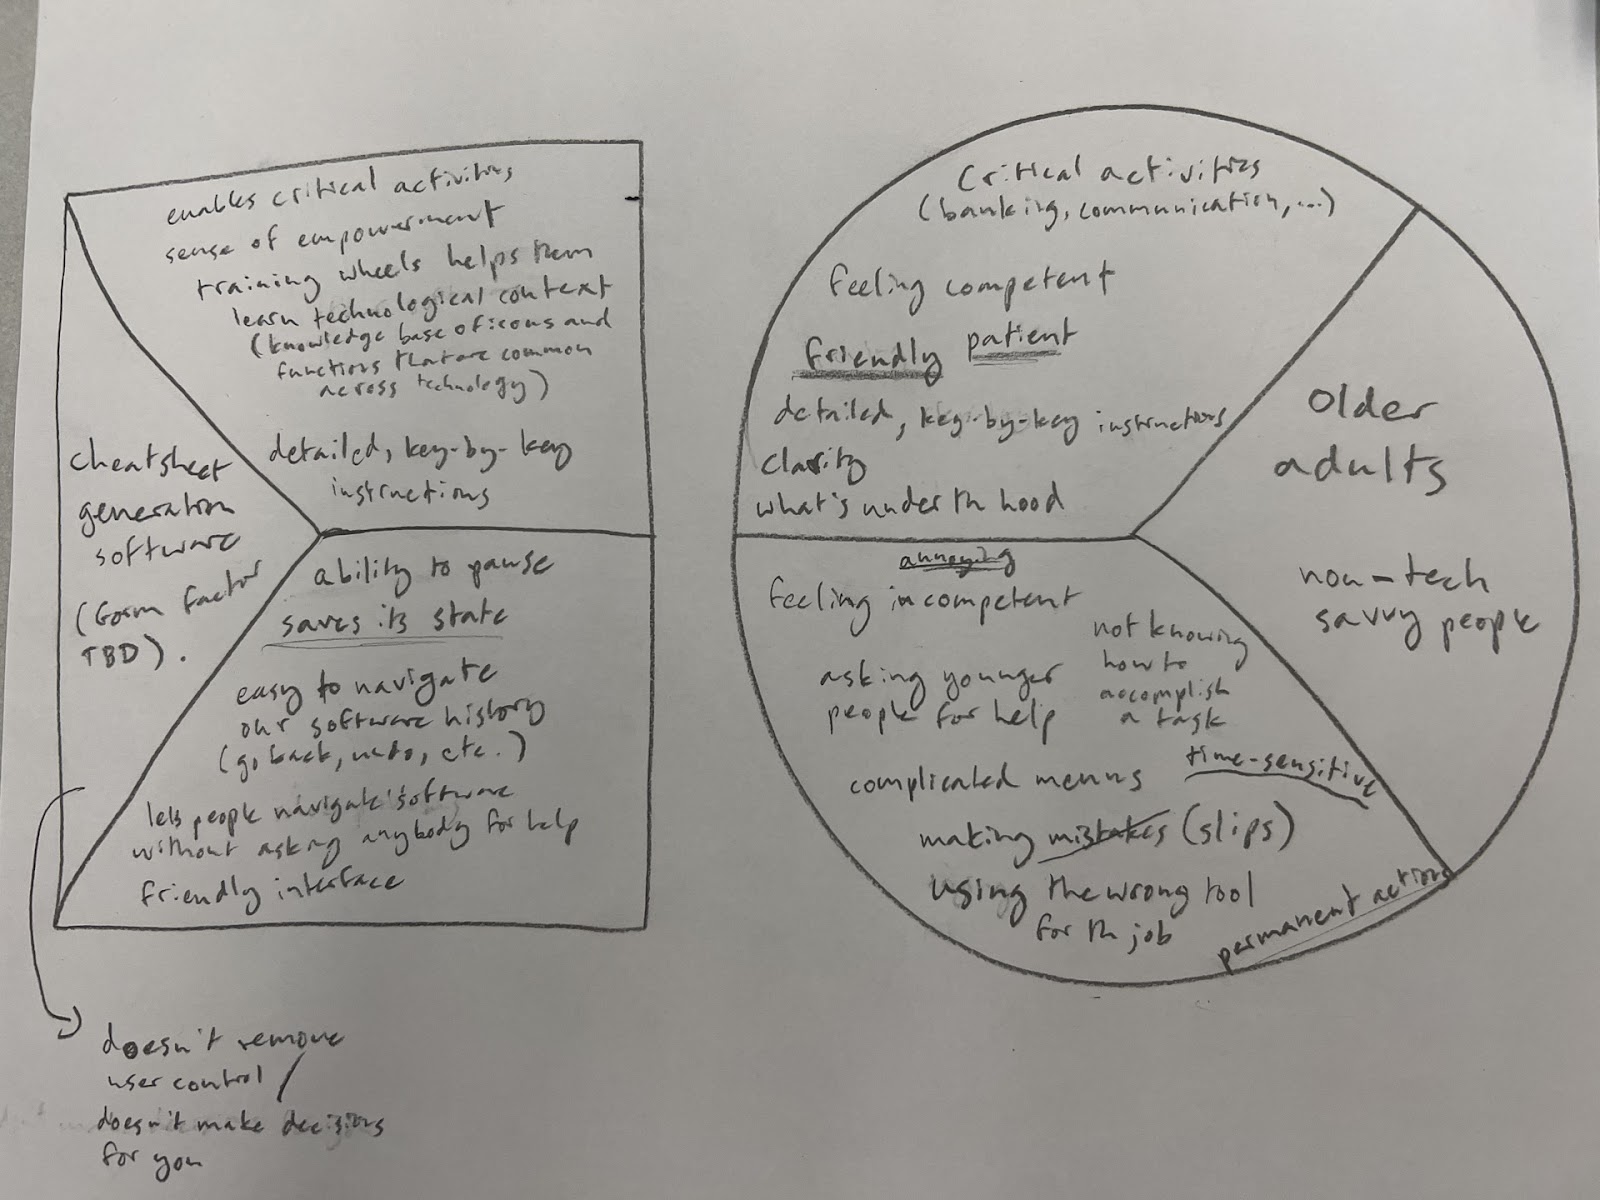 enables critical activities
sense of empowerment
training wheels helps them
learn technological context
(knowledge base of icons and
functions that are common
across technology)
detailed, key-by-key
instructions
cheatsheet
generation
software
(form factor
TBD).
ability to pause
saves its state
easy to navigate
our software history
(go back, undo, etc.)
lets people navigate software
without asking anybody for help
friendly interface
doesn't remove
user control /
doesn't make decisions
for you
Critical activities
(banking, communication, ...)
feeling competent
friendly patient
detailed, key-by-key instructions
clarity
what's under th hood
Older
adults
non-tech
savvy people
annoying
feeling incompetent
not knowing
how to
accomplish
a task
asking younger
people for help
complicated menus
time-sensitive
making mistakes (slips)
using the wrong tool
for th job
permanent actions